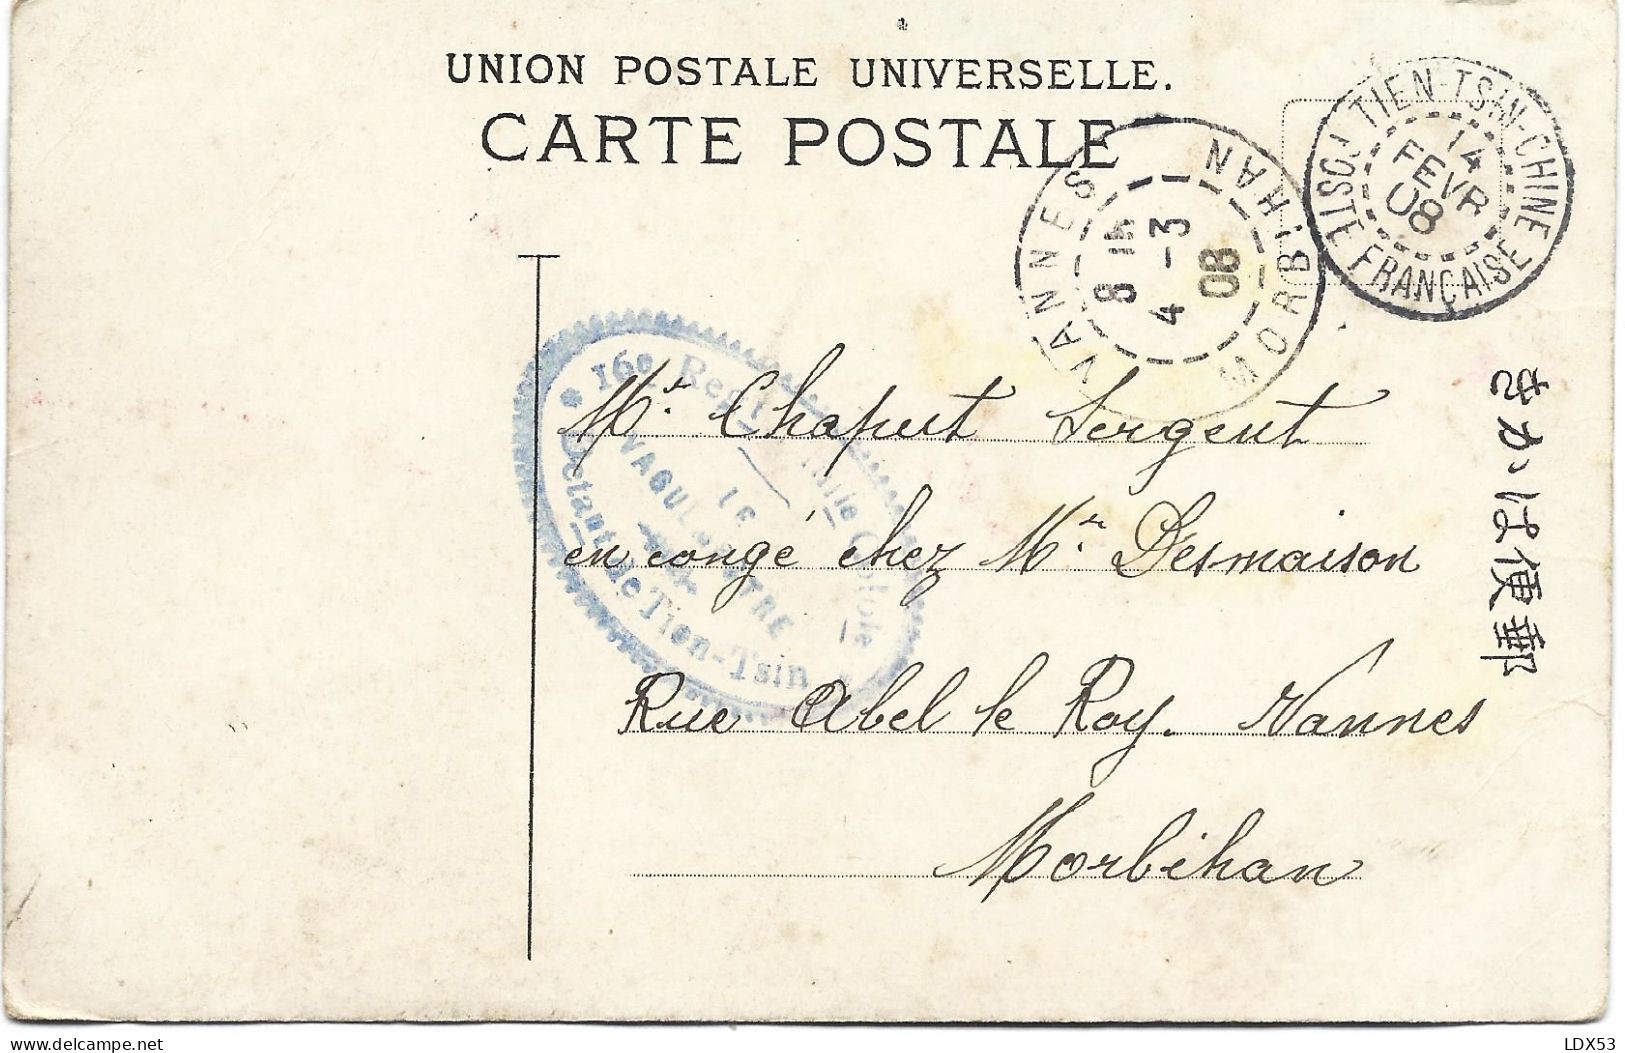 UNION POSTALE UNIVERSELLE.
CARTE POSTALE
TIEN-TSIN-CHINE
POSTE FRANÇAISE
14
FEVR
08
VANNES
MORBIHAN
8
4 -3
08
16e Regt Colole
VAGUEMESTRE
Détant de Tien-Tsin
Mr. Chaput Sergent
en congé chez Mr. Desmaison
Rue Abel le Roy. Vannes
Morbihan
きかは便郵
www.delcampe.net
LDX53